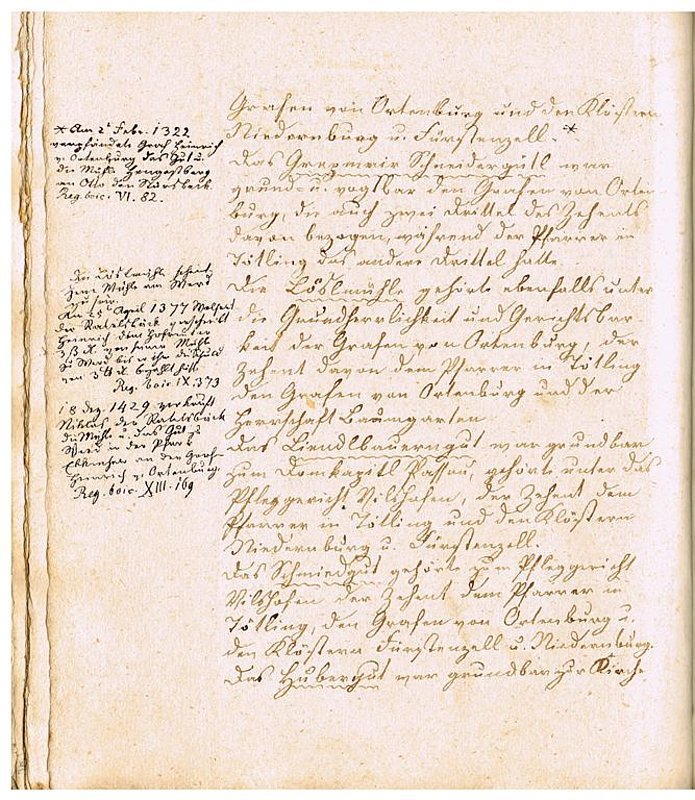 Grafen von Ortenburg und den Klöstern
Niedernburg u. Fürstenzell. *
Das Grazmair Schneidergütl war
grund- u. vogtbar den Grafen von Orten-
burg, die auch zwei Drittel des Zehents
davon bezogen, während der Pfarrer in
Tötling das andere Drittel hatte.
Die Löslmühle gehörte ebenfalls unter
die Grundherrlichkeit und Gerichtsbar-
keit der Grafen von Ortenburg, der
Zehent davon dem Pfarrer in Tötling
den Grafen von Ortenburg und der
Herrschaft Baumgarten.
Das Liendlbauerngut war grundbar
zum Domkapitl Passau, gehörte unter das
Pfleggericht Vilshofen, der Zehent dem
Pfarrer in Tötling und den Klöstern
Niedernburg u. Fürstenzell.
Das Schmiedgut gehörte zum Pfleggericht
Vilshofen der Zehent dem Pfarrer in
Tötling, den Grafen von Ortenburg u.
den Klöstern Fürstenzell u. Niedernburg.
Das Hubergut war grundbar zur Kirche
* Am 2t Febr. 1322
verpfändete Graf Heinrich
v. Ortenburg das Gut u.
die Mühle
an Otto den
Reg. boic. VI. 82.
Die Löslmühle scheint
jene Mühle am Werd
zu sein.
Am 25t April 1377
der Ratelsbück verschreibt
Heinrich dem
3 ß dl. von seiner Mühle
zu Werd bis er ihm die Schuld
von 5 ℔ dl. bezahlt hat
Reg. boic IX. 373
18 Dez. 1429 verkauft
Niklas der Ratelsbück
die Mühle u. das Gut zu
Werd in der Pfarr
an den Grafen
Heinrich v. Ortenburg.
Reg. boic. XIII. 169